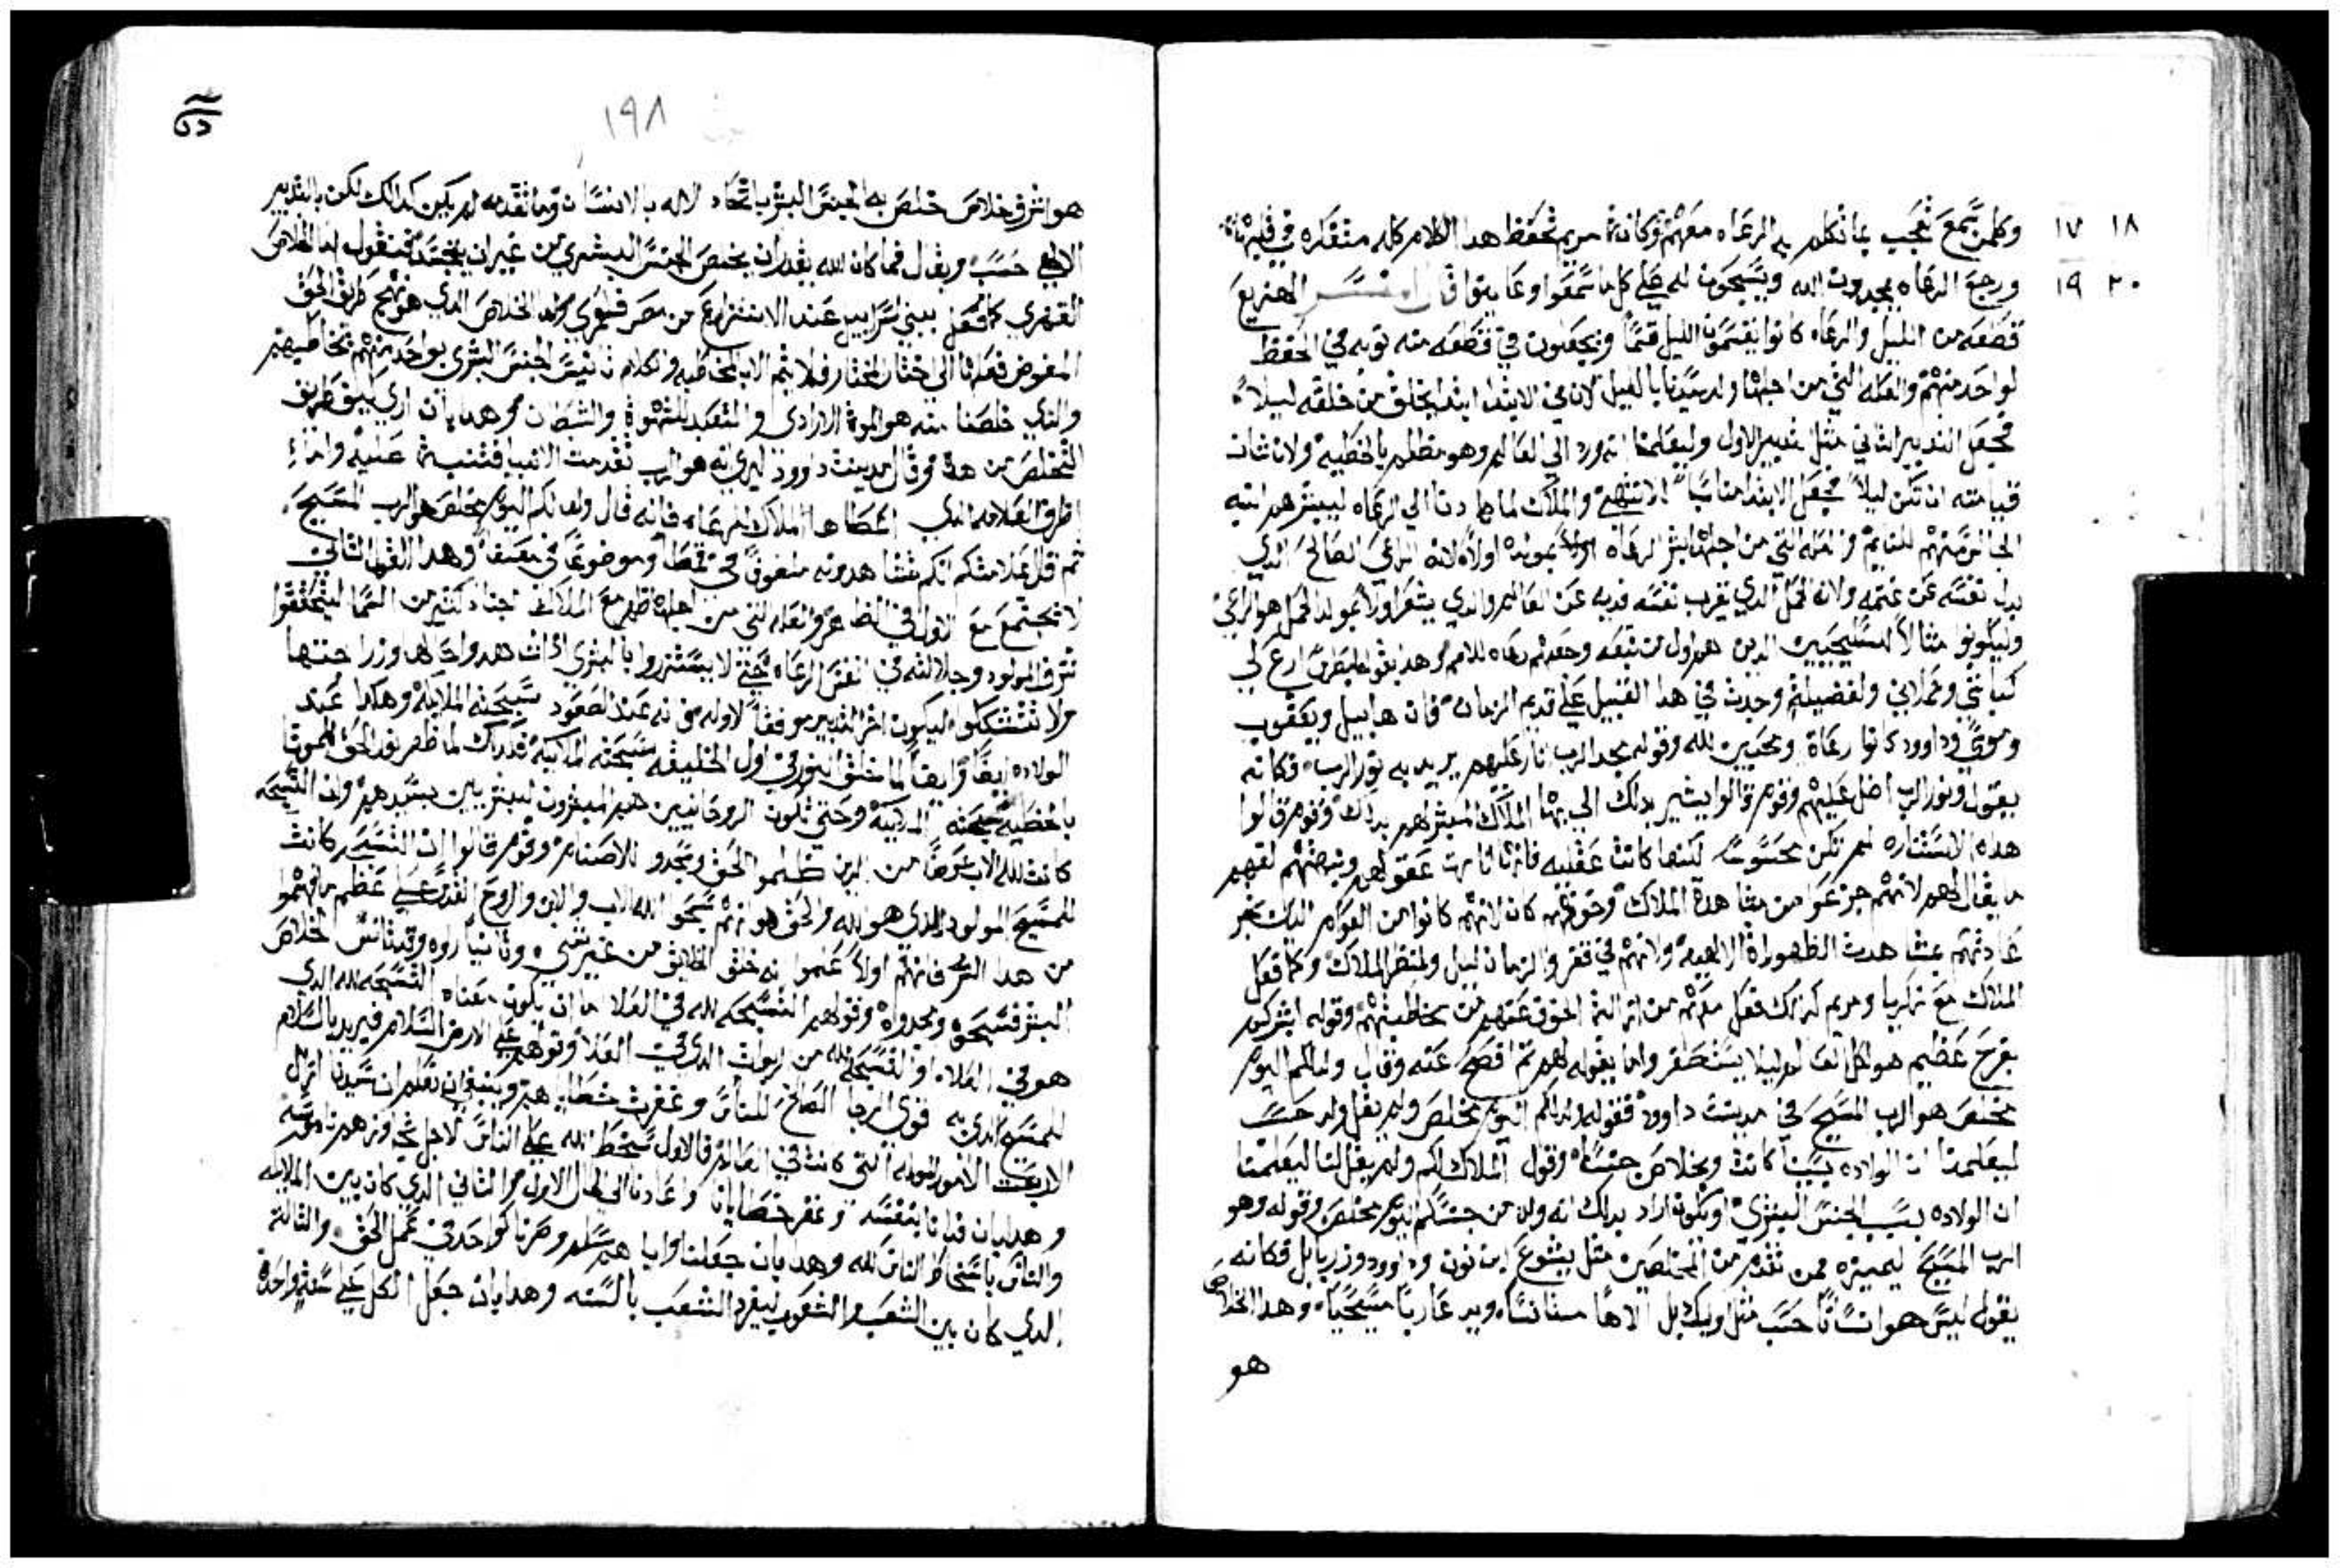 ١٨ ١٧ وكلمن سمع تعجب بما تكلم به الرعاه معهم وكانت مريم تحفظ هدا الكلام كله متفكره في قلبها
٢٠ ١٩ ورجع الرعاه يمجدون الله ويسبحون له علي كل ما سمعوا وعاينوا قال المفسر الهزيع
قطعه من الليل والرعاه كانوا يقسمون الليل قسما ويجعلون في قطعه منه نوبه في الحفظ
لواحد منهم والعله التي من اجلها ولد سيدنا بالليل لان في الابتدا ابتدا يخلق من خلقه ليلا
فجعل التدبير التاني مثل تدبير الاول وليعلمنا انه ورد الي العالم وهو مظلم بالخطيه ولان شان
قيامته ان تكن ليلا فجعل الابتدا مناسبا للانتهي والملاك لما دنا الي الرعاه ليبشرهم انتبه
من اجلها بشر الرعاه بمولده اولا لانه الراعي الصالح الدي
بدل نفسه عن غنمه ولانه الحمل الدي يقرب نفسه فديه عن العالم والدي يشعر اولا بمولد الحمل هو الراعي
وليكونوا مثالا للسليحيين الدين هم اول من تبعه وجعلهم رعاه للامم وهدا بقوله لبطرس ارع لي
كباشي وحملاني ولفضيلة وجدت في هدا القبيل علي قديم الزمان فان هابيل ويعقوب
وموسي وداوود كانوا رعاة ومحبين لله وقوله مجد الرب انار عليهم يريد به نور الرب فكانه
يقول ونور الرب اضل عليهم وقوم قالوا يشير بدلك الي بها الملاك المبشر لهم بدلك وقوم قالوا
هده الاستناره لم تكن محسوسه لكنها كانت عقليه فانها انارت عقولهم لفهم
ما يقال لهم لانهم جزعوا من مشاهدة الملاك وخوفهم كان لانهم كانوا من العوام الدين لم تجر
عادتهم بمشاهدت الظهورات الالهيه ولانهم في قفر والزمان ليل ولمنظر الملاك وكما فعل
الملاك مع زكريا ومريم كدلك فعل معهم من ازالة الخوف عنهم من مخاطبتهم وقوله ابشركم
بفرح عظيم هو لكل العالم ليلا يستصغر وانما يقوله لهم تم افصح عنه وقال ولد لكم اليوم
مخلص هو الرب المسيح في مدينت داوود فقوله ولد لكم اليوم مخلص ولم يقل ولد حسب
ليعلمنا ان الولاده بسببنا كانت وبخلاص جنسنا وقول الملاك لكم ولم يقل لنا ليعلمنا
ان الولاده بسبب الجنس البشري او يكون اراد بدلك انه ولد من جنسكم اليوم مخلص وقوله وهو
الرب المسيح ليميزه ممن تقدم من المخلصين مثل يشوع ابن نون وداوود وزربابل فكانه
يقول ليس هو انسانا حسب مثل اوليك بل الاها متانسا ويدعا ربا مسيحيا وهدا الخلاص
هو
١٩٨
هو اشرف خلاص خلص به الجنس البشري باتحاد الاله بالانسان وما تقدمه لم يكن كدالك لكن بالتدبير
الالهي حسب ويقال فما كان الله يقدر ان يخلص الجنس البشري من غير ان يتجسد فنقول اما الخلاص
القهري كما فعل ببني اسراييل عند الانتزاع من مصر فلعمري واما الخلاص الدي هو نهج طريق الحق
المفوض فعلها الي اختيار المختار فلا يتم الا بالمخاطبه والكلام تانيس الجنس البشري بواحد منهم بمخاطبهم
والدي خلصنا منه هو الموت الارادي والتعبد للشهوة والشيطان وهدا بان اري كيف طريق
التخلص من هده وقال مدينت داوود ليري انه هو الرب تقدمت الانبيا فتنبت عليه واما
طرق العلامه الدي اعطاها الملاك للرعاه فانه قال ولد لكم اليوم مخلص هو الرب المسيح
تم قال علامتكم انكم تشاهدونه ملفوفا في قمط وموضوعا في معلف وهدا القول التاني
لا يجتمع مع الاول في الظاهر والعله التي من اجلها ظهر مع الملاك اجناد كتير من السما ليتحققوا
شرف المولود وجلالته في انفس الرعاه حتي لا يستنزروا بالبشري ادا شاهدوا حالها وزراحتها
ولا تتشككوا وليكون اخر التدبير موافقا لاوله فانه عند الصعود سبحته الملايكه وهكدا عند
الولاده ايضا وايضا لما خلق النور في اول الخليقه سبحته الملايكه فكدلك لما ظهر نور الحق
وحتي تكون الروحانيين هم المبشرون للبشريين بسيدهم وان التسبحه
كانت لله الاب عوضا من الدين ظلموا الحق وسجدو للاصنام وقوم قالوا ان التسبيح كانت
للمسيح المولود الدي هو الله والحق هو انهم سبحوا الله الاب والابن والروح القدس علي عظم ما فهموا
من هدا السر فانهم اولا علموا انه خلق الخلايق من غير شي وتانيا راوه وقد تانس لخلاص
البشر فسبحوه ومجدوه وقولهم التسبحه لله في العلا اما ان يكون معناه التسبحه لله الدي
هو في العلاه او التسبحه لله من القوات الدي في العلا وقولهم علي الارض السلام فيريد بالسلام
للمسيح الدي به قوي الرجا الصالح للناس وغفرت خطاياهم وينبغي ان نعلم ان سيدنا ازال
الاربعت الامور التي كانت في العالم فالاول سخط الله علي الناس لاجل تجاوزهم ناموسه
وهدا بان فدانا بنفسه وغفر خطايانا واعادنا الي الحال الاول والتاني الدي كان بين الملايكه
والناس باسخاط الناس لله وهدا بان جعلنا واياهم سلم وصرنا كواحد في عمل الحق والتالت
الدي كان بين الشعب والشعوب ليفرد الشعب بالسنه وهدا بان جعل الكل علي سنة واحدة